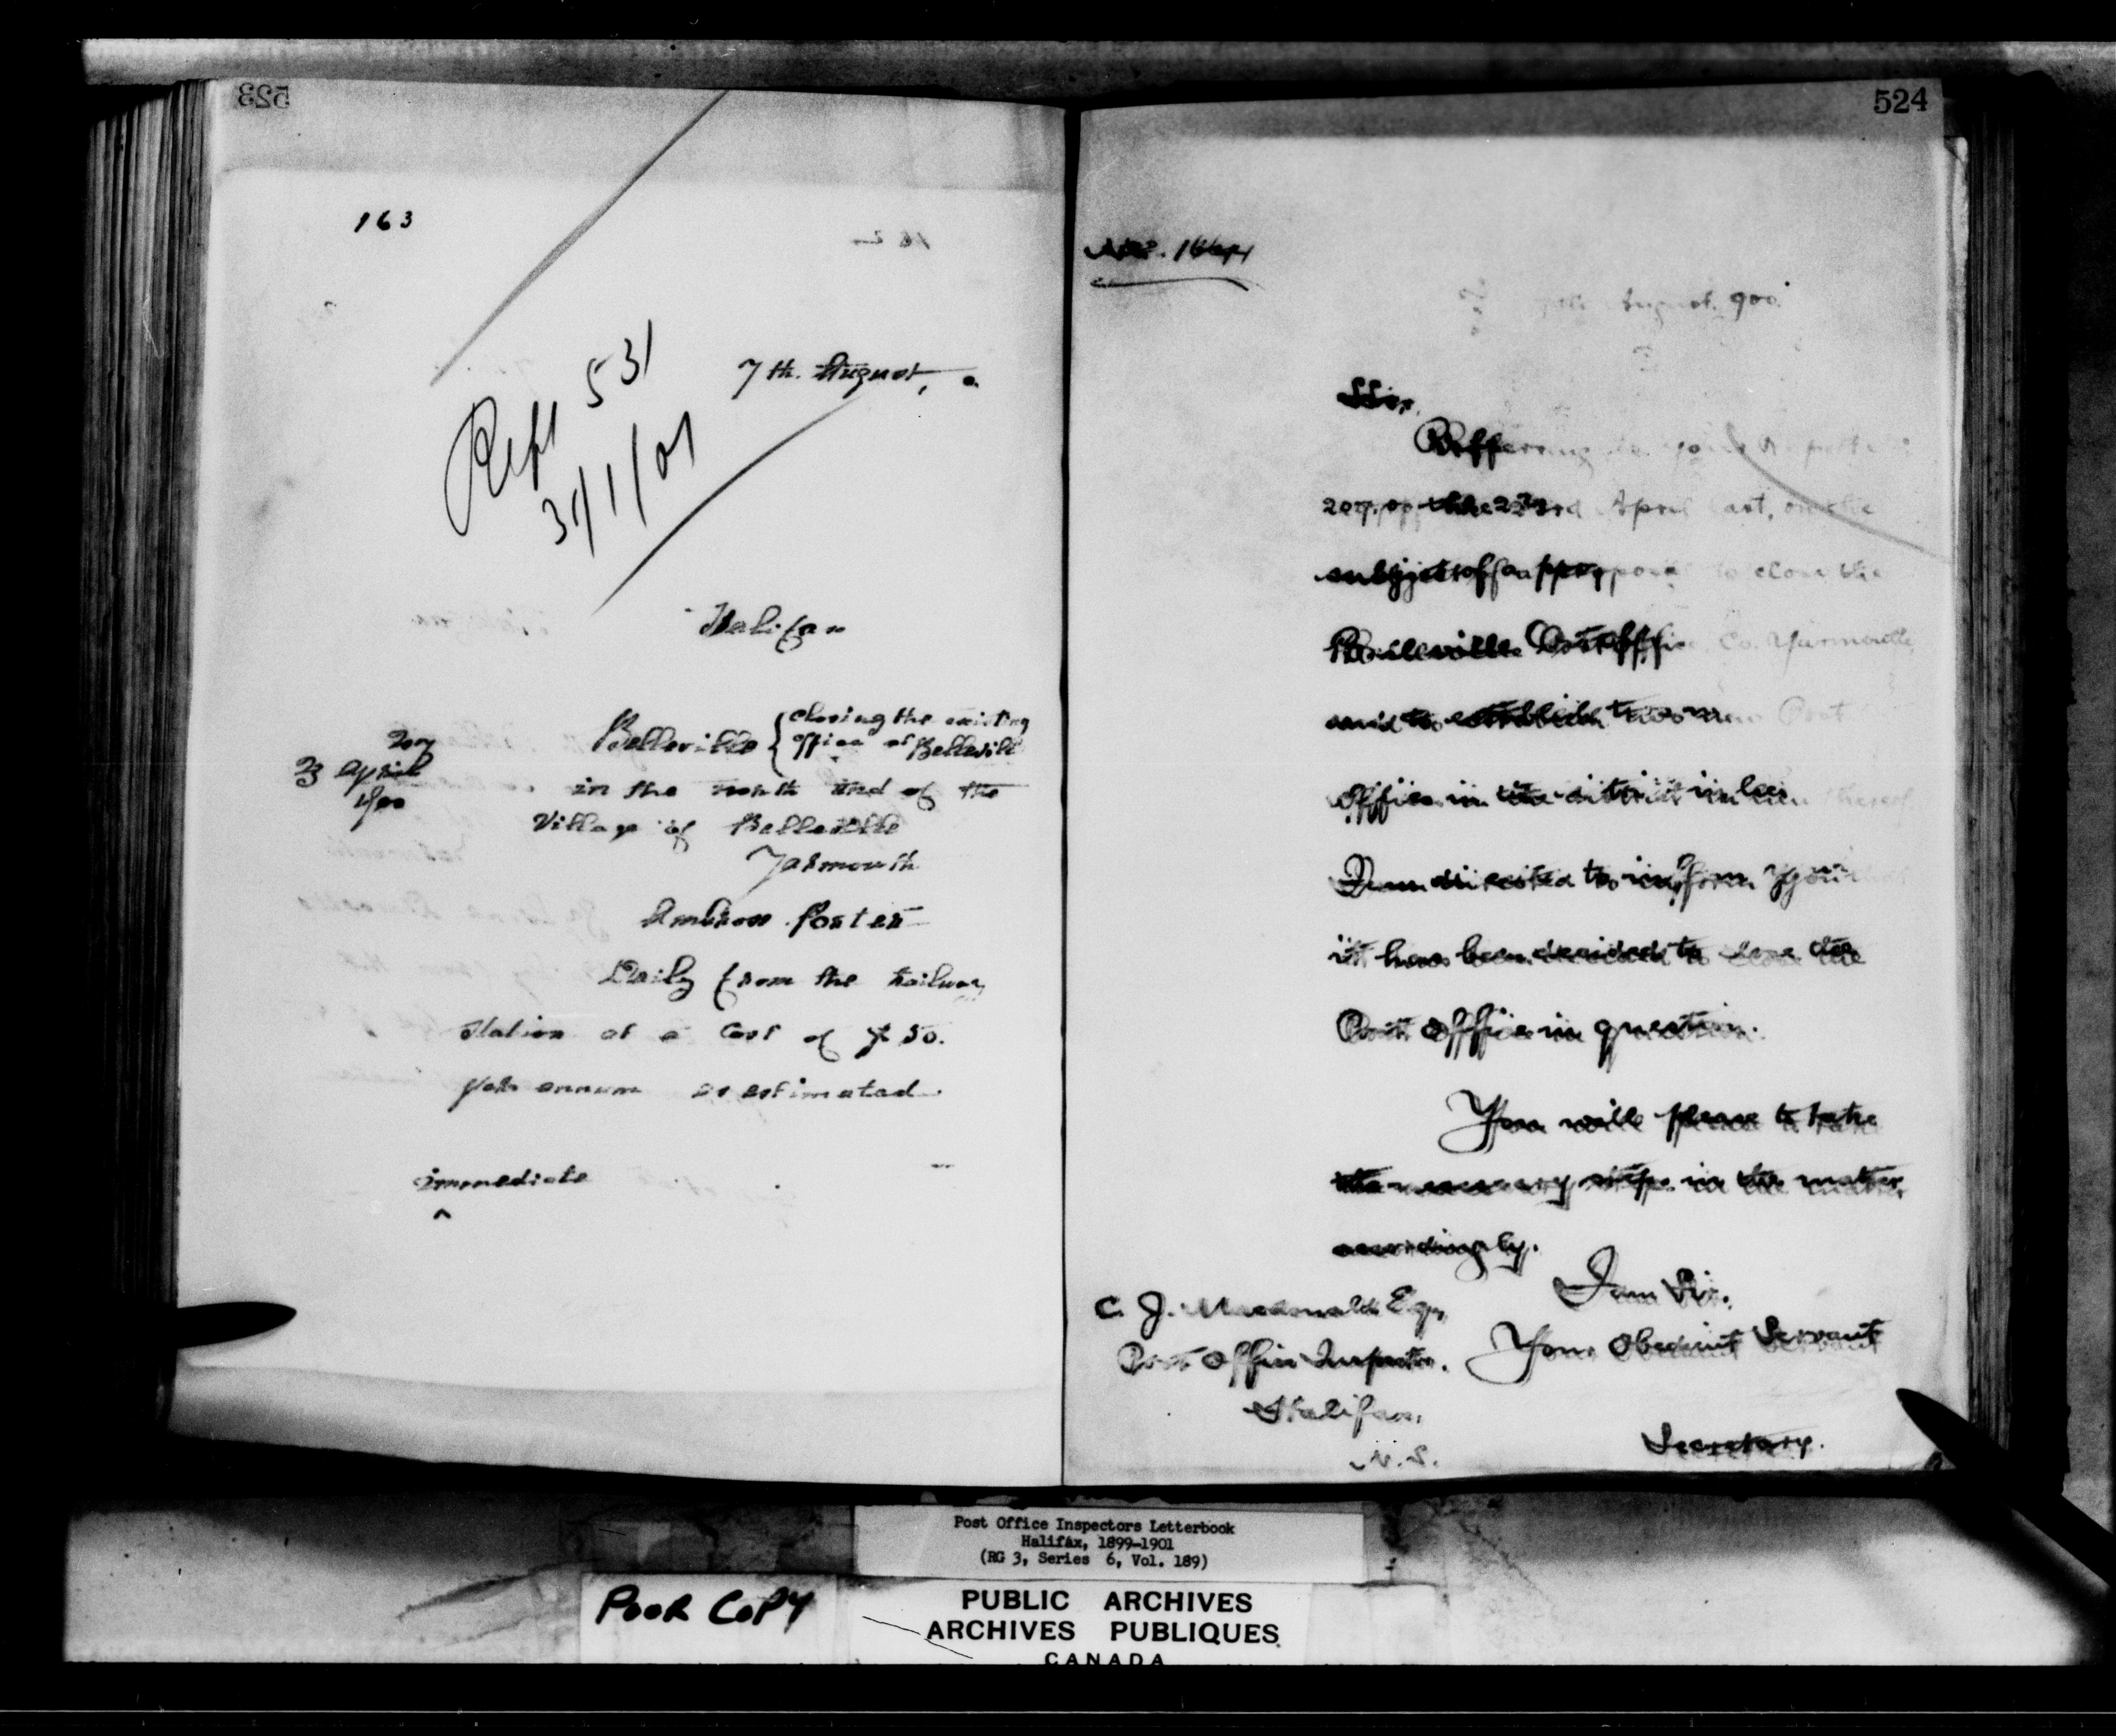 523
163
Rept 531
31/1/01
7th. August, 0.
Halifax
207
23 April
1900
Belleville { closing the existing
office at Belleville
in the north end of the
Village of Belleville
Yarmouth
Ambrose Porter
Daily from the Railway
Station at a Cost of $ 50.
per annum as estimated.
immediate
524
No. 164
7th August, 900.
Sir,
Referring to your Report
207, of the 23rd April last, on the
subject of a proposal to close the
Belleville Post Office, Co. Yarmouth,
and to establish two new Post
Offices in the district in lieu thereof
I am directed to inform you
it has been decided to close the
Post Office in question.
You will please to take
the necessary steps in the matter,
accordingly.
I am Sir,
Your Obedient Servant
Secretary.
C. J. Macdonald Esq,
Post Office Inspector.
Halifax,
N. S.
Post Office Inspectors Letterbook
Halifax, 1899-1901
(RG 3, Series 6, Vol. 189)
POOR COPY
PUBLIC ARCHIVES
ARCHIVES PUBLIQUES
CANADA